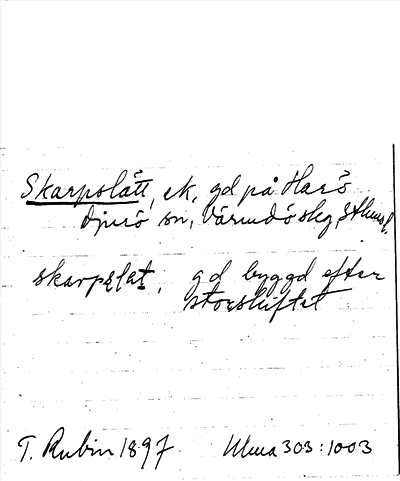 Skarpslätt, ek, gd på Harö
Djurö sn, Värmdö skg, Sthms l.
skarpslat, gd byggd efter
storskiftet
T. Rubin 1897. Ulma 303:1003